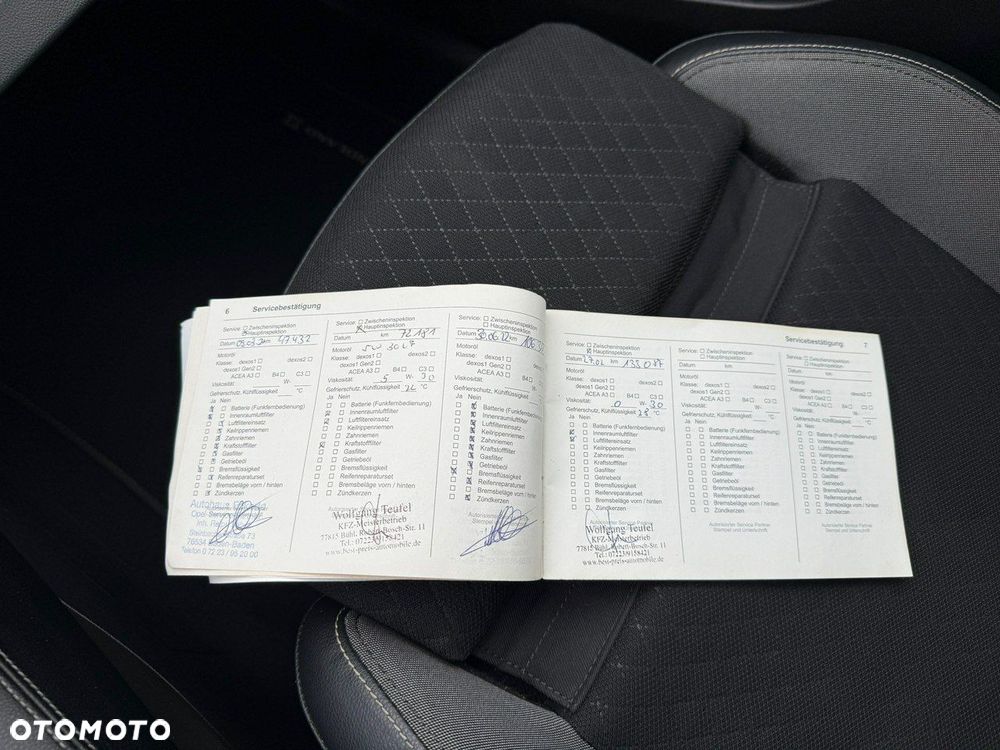 6 Servicebestätigung
Service: Zwischeninspektion
Hauptinspektion
Datum 03.03 km 47.432
Motoröl
Klasse: dexos1 dexos2
dexos1 Gen2
ACEA A3 B4 C3
Viskosität: W-
Gefrierschutz, Kühlflüssigkeit °C
Ja Nein
Batterie (Funkfernbedienung)
Innenraumluftfilter
Luftfiltereinsatz
Keilrippenriemen
Zahnriemen
Kraftstofffilter
Gasfilter
Getriebeöl
Bremsflüssigkeit
Reifenreparaturset
Bremsbeläge vorn / hinten
Zündkerzen
Autohaus
Opel-Service
Inh.
76534 Baden-Baden
Telefon 0 72 23 / 95 20 00
Service: Zwischeninspektion
Hauptinspektion
Datum km 72 181
Motoröl 5W 30
Klasse: dexos1 dexos2
dexos1 Gen2
ACEA A3 B4 C3
Viskosität: 5 W- 30
Gefrierschutz, Kühlflüssigkeit °C
Ja Nein
Batterie (Funkfernbedienung)
Innenraumluftfilter
Luftfiltereinsatz
Keilrippenriemen
Zahnriemen
Kraftstofffilter
Gasfilter
Getriebeöl
Bremsflüssigkeit
Reifenreparaturset
Bremsbeläge vorn / hinten
Zündkerzen
Wolfgang Teufel
KFZ-Meisterbetrieb
77815 Bühl, Robert-Bosch-Str. 11
Tel.: 07223/9158421
www.best-preis-automobile.de
Service: Zwischeninspektion
Hauptinspektion
Datum 30.06.22 km
Motoröl
Klasse: dexos1
dexos1 Gen2
ACEA A3
Viskosität:
Gefrierschutz, Kühlflüssigkeit
Ja Nein
Batterie (Funkfernbedienung)
Innenraumluftfilter
Luftfiltereinsatz
Keilrippenriemen
Zahnriemen
Kraftstofffilter
Gasfilter
Getriebeöl
Bremsflüssigkeit
Reifenreparaturset
Bremsbeläge vorn
Zündkerzen
Servicebestätigung 7
Service: Zwischeninspektion
Hauptinspektion
Datum km
Motoröl
Klasse: dexos1 dexos2
dexos1 Gen2
ACEA A3 B4 C3
Viskosität: 0 W- 30
Gefrierschutz, Kühlflüssigkeit °C
Ja Nein
Batterie (Funkfernbedienung)
Innenraumluftfilter
Luftfiltereinsatz
Keilrippenriemen
Zahnriemen
Kraftstofffilter
Gasfilter
Getriebeöl
Bremsflüssigkeit
Reifenreparaturset
Bremsbeläge vorn / hinten
Zündkerzen
Autorisierter Service Partner
Wolfgang Teufel
KFZ-Meisterbetrieb
77815 Bühl, Robert-Bosch-Str. 11
Tel.: 07223/9158421
www.best-preis-automobile.de
Service: Zwischeninspektion
Hauptinspektion
Datum km
Motoröl
Klasse: dexos1 dexos2
dexos1 Gen2
ACEA A3 B4 C3
Viskosität: W-
Gefrierschutz, Kühlflüssigkeit °C
Ja Nein
Batterie (Funkfernbedienung)
Innenraumluftfilter
Luftfiltereinsatz
Keilrippenriemen
Zahnriemen
Kraftstofffilter
Gasfilter
Getriebeöl
Bremsflüssigkeit
Reifenreparaturset
Bremsbeläge vorn / hinten
Zündkerzen
Autorisierter Service Partner
Stempel und Unterschrift
Service: Zwischeninspektion
Hauptinspektion
Datum km
Motoröl
Klasse: dexos1 dexos2
dexos1 Gen2
ACEA A3 B4 C3
Viskosität: W-
Gefrierschutz, Kühlflüssigkeit °C
Ja Nein
Batterie (Funkfernbedienung)
Innenraumluftfilter
Luftfiltereinsatz
Keilrippenriemen
Zahnriemen
Kraftstofffilter
Gasfilter
Getriebeöl
Bremsflüssigkeit
Reifenreparaturset
Bremsbeläge vorn / hinten
Zündkerzen
Autorisierter Service Partner
Stempel und Unterschrift
OTOMOTO